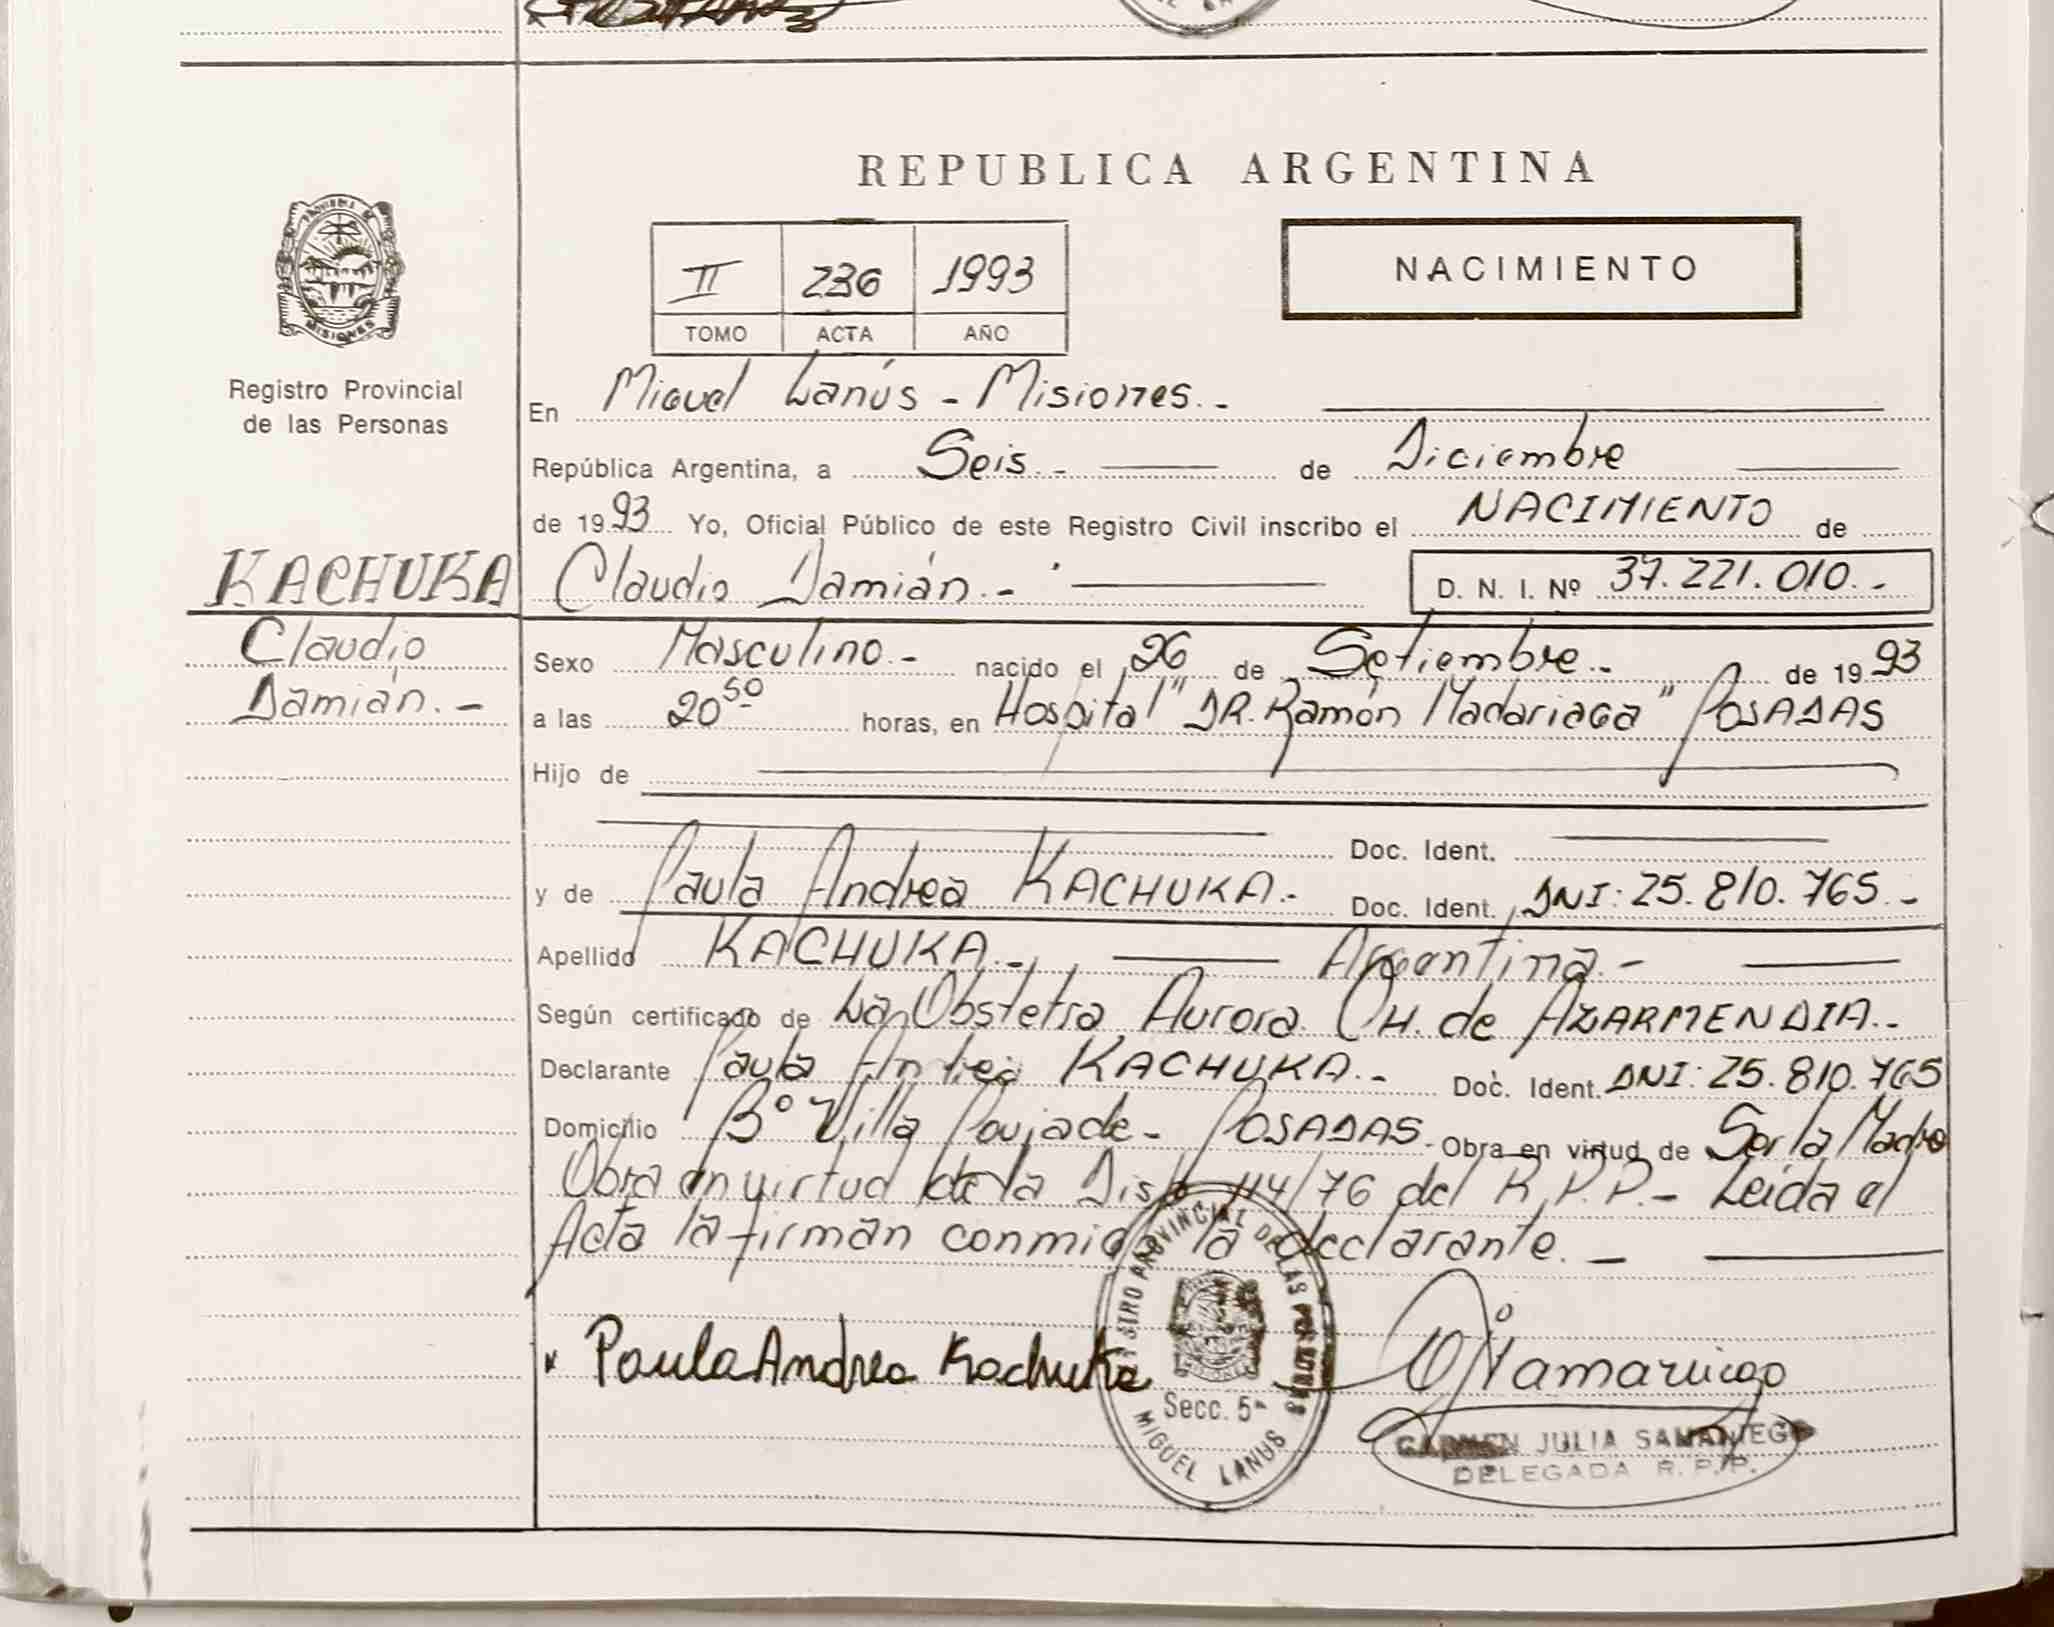 REPUBLICA ARGENTINA
PROVINCIA DE
MISIONES
Registro Provincial
de las Personas
II 236 1993
TOMO ACTA AÑO
NACIMIENTO
En Miguel Lanús - Misiones.-
República Argentina, a Seis.- de Diciembre
de 1993 Yo, Oficial Público de este Registro Civil inscribo el NACIMIENTO de
KACHUKA Claudio Damián.- D. N. I. Nº 37.221.010.-
Claudio
Damián.-
Sexo Masculino.- nacido el 26 de Setiembre.- de 1993
a las 20 50 horas, en Hospital "DR. Ramón Madariaga" POSADAS
Hijo de
Doc. Ident.
y de Paula Andrea KACHUKA.- Doc. Ident. DNI: 25.810.765.-
Apellido KACHUKA.- Argentina.-
Según certificado de La Obstetra Aurora CH. de AZARMENDIA.-
Declarante Paula Andrea KACHUKA.- Doc. Ident. DNI: 25.810.765
Domicilio Bº Villa Poujade - POSADAS. Obra en virtud de Ser la Madre
Obra en virtud de la Disp. 114/76 del R.P.P.- Leída el
Acta la firman conmigo la declarante.-
Paula Andrea Kachuka
REGISTRO PROVINCIAL DE LAS PERSONAS
Secc. 5ª
MIGUEL LANUS
CARMEN JULIA SAMANIEGO
DELEGADA R.P.P.